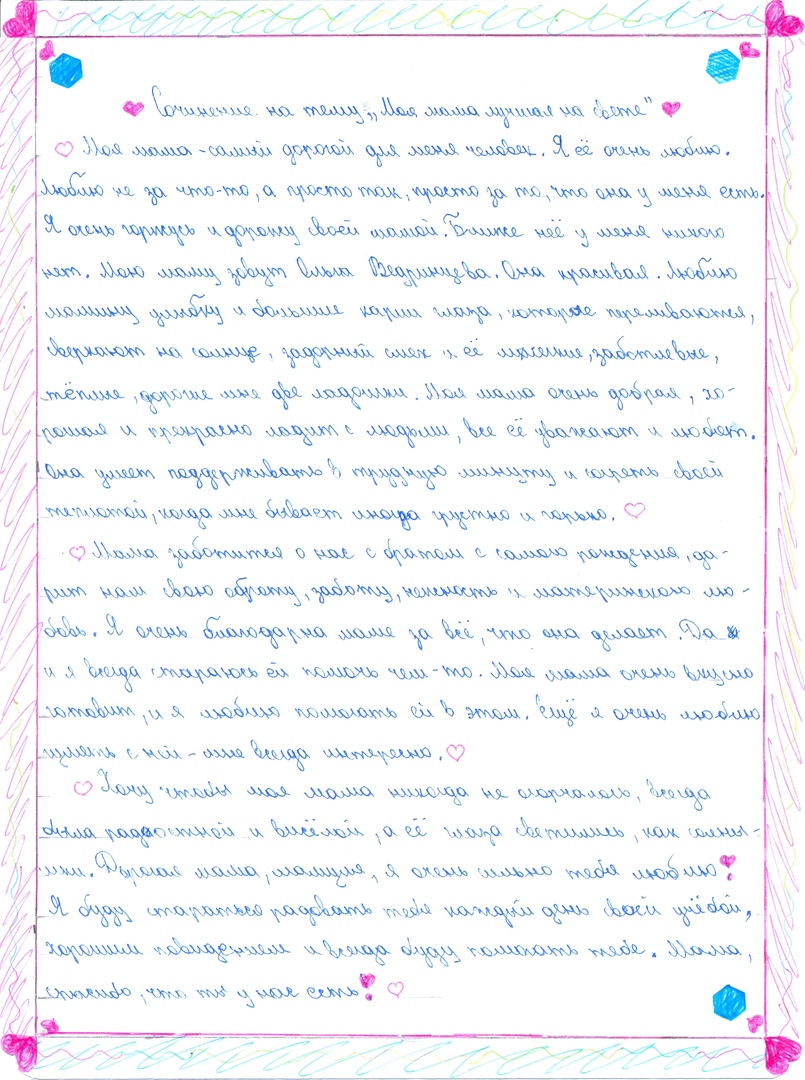 Сочинение на тему „Моя мама лучшая на свете"
Моя мама - самый дорогой для меня человек. Я её очень люблю.
Люблю не за что-то, а просто так, просто за то, что она у меня есть.
Я очень горжусь и дорожу своей мамой. Ближе неё у меня никого
нет. Мою маму зовут Ольга Ведринцева. Она красивая. Люблю
мамину улыбку и большие карии глаза, которые переливаются,
сверкают на солнце, задорный смех и её нежные, заботлевые,
тёплые, дорогие мне две ладошки. Моя мама очень добрая, хо-
рошая и прекрасно ладит с людьми, все её уважают и любют.
Она умеет поддерживать в трудную минуту и согреть своей
теплотой, когда мне бывает иногда грустно и горько.
Мама заботится о нас с братом с самого рождения, да-
рит нам свою оброту, заботу, нежность и материнскою лю-
бовь. Я очень благодарна маме за всё, что она делает. Да
и я всегда стараюсь ей помочь чем-то. Моя мама очень вкусно
готовит, и я люблю помогать ей в этом. Ещё я очень люблю
гулять с ней - мне всегда интересно.
Хочу чтобы моя мама никогда не огорчалась, всегда
была радостной и висёлой, а её глаза светились, как солны-
шки. Дорогая мама, мамуля, я очень сильно тебя люблю!
Я буду стараться радовать тебя каждый день своей учёбой,
хорошим повидением и всегда буду помогать тебе. Мама,
спасибо, что ты у нас есть!